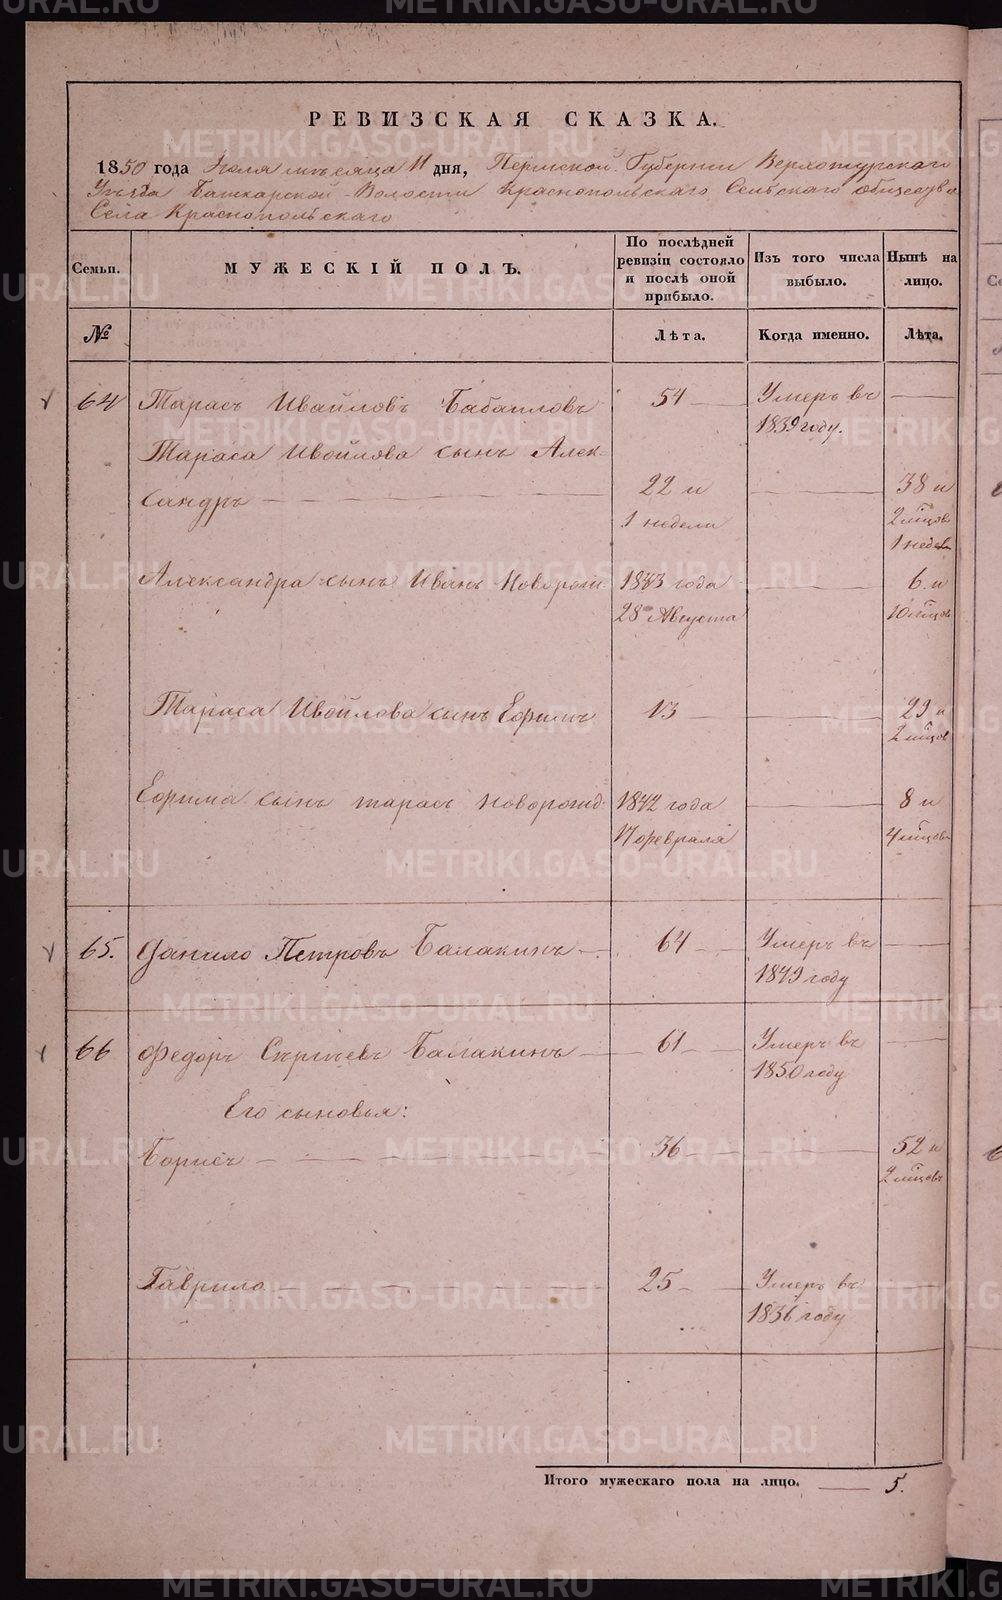 РЕВИЗСКАЯ СКАЗКА.
1850 года Июля мѣсяца 11 дня, Пермской Губернии Верхотурскаго
Уѣзда Башкарской Волости Краснопольскаго Сельскаго общества
Села Краснопольскаго
Семьи.
МУЖЕСКІЙ ПОЛЪ.
По послѣдней ревизіи состояло и послѣ оной прибыло.
Изъ того числа выбыло.
Нынѣ на лицо.
№
Лѣта.
Когда именно.
Лѣта.
64 Тарасъ Ивайловъ Бабаиловъ 54 Умеръ въ
1839 году.
Тараса Ивойлова сынъ Алек-
сандръ 22 и 38 и
1 недели 2 мѣсцов
1 недел
Александра сынъ Иванъ новорож. 1843 года 6 и
28 Августа 10 мѣсцов
Тараса Ивойлова сынъ Ефимъ 13 29 и
2 мѣсцов
Ефима сынъ тарасъ новорожд. 1842 года 8 и
17 февраля 4 мѣсцов
65. Данило Петровъ Балакинъ 64 Умеръ въ
1849 году
66 Федоръ Сергиевъ Балакинъ 61 Умеръ въ
1850 году
Его сыновья:
Борисъ 36 52 и
2 мѣсцовъ
Гаврило 25 Умеръ въ
1836 году
Итого мужескаго пола на лицо. 5.
METRIKI.GASO-URAL.RU